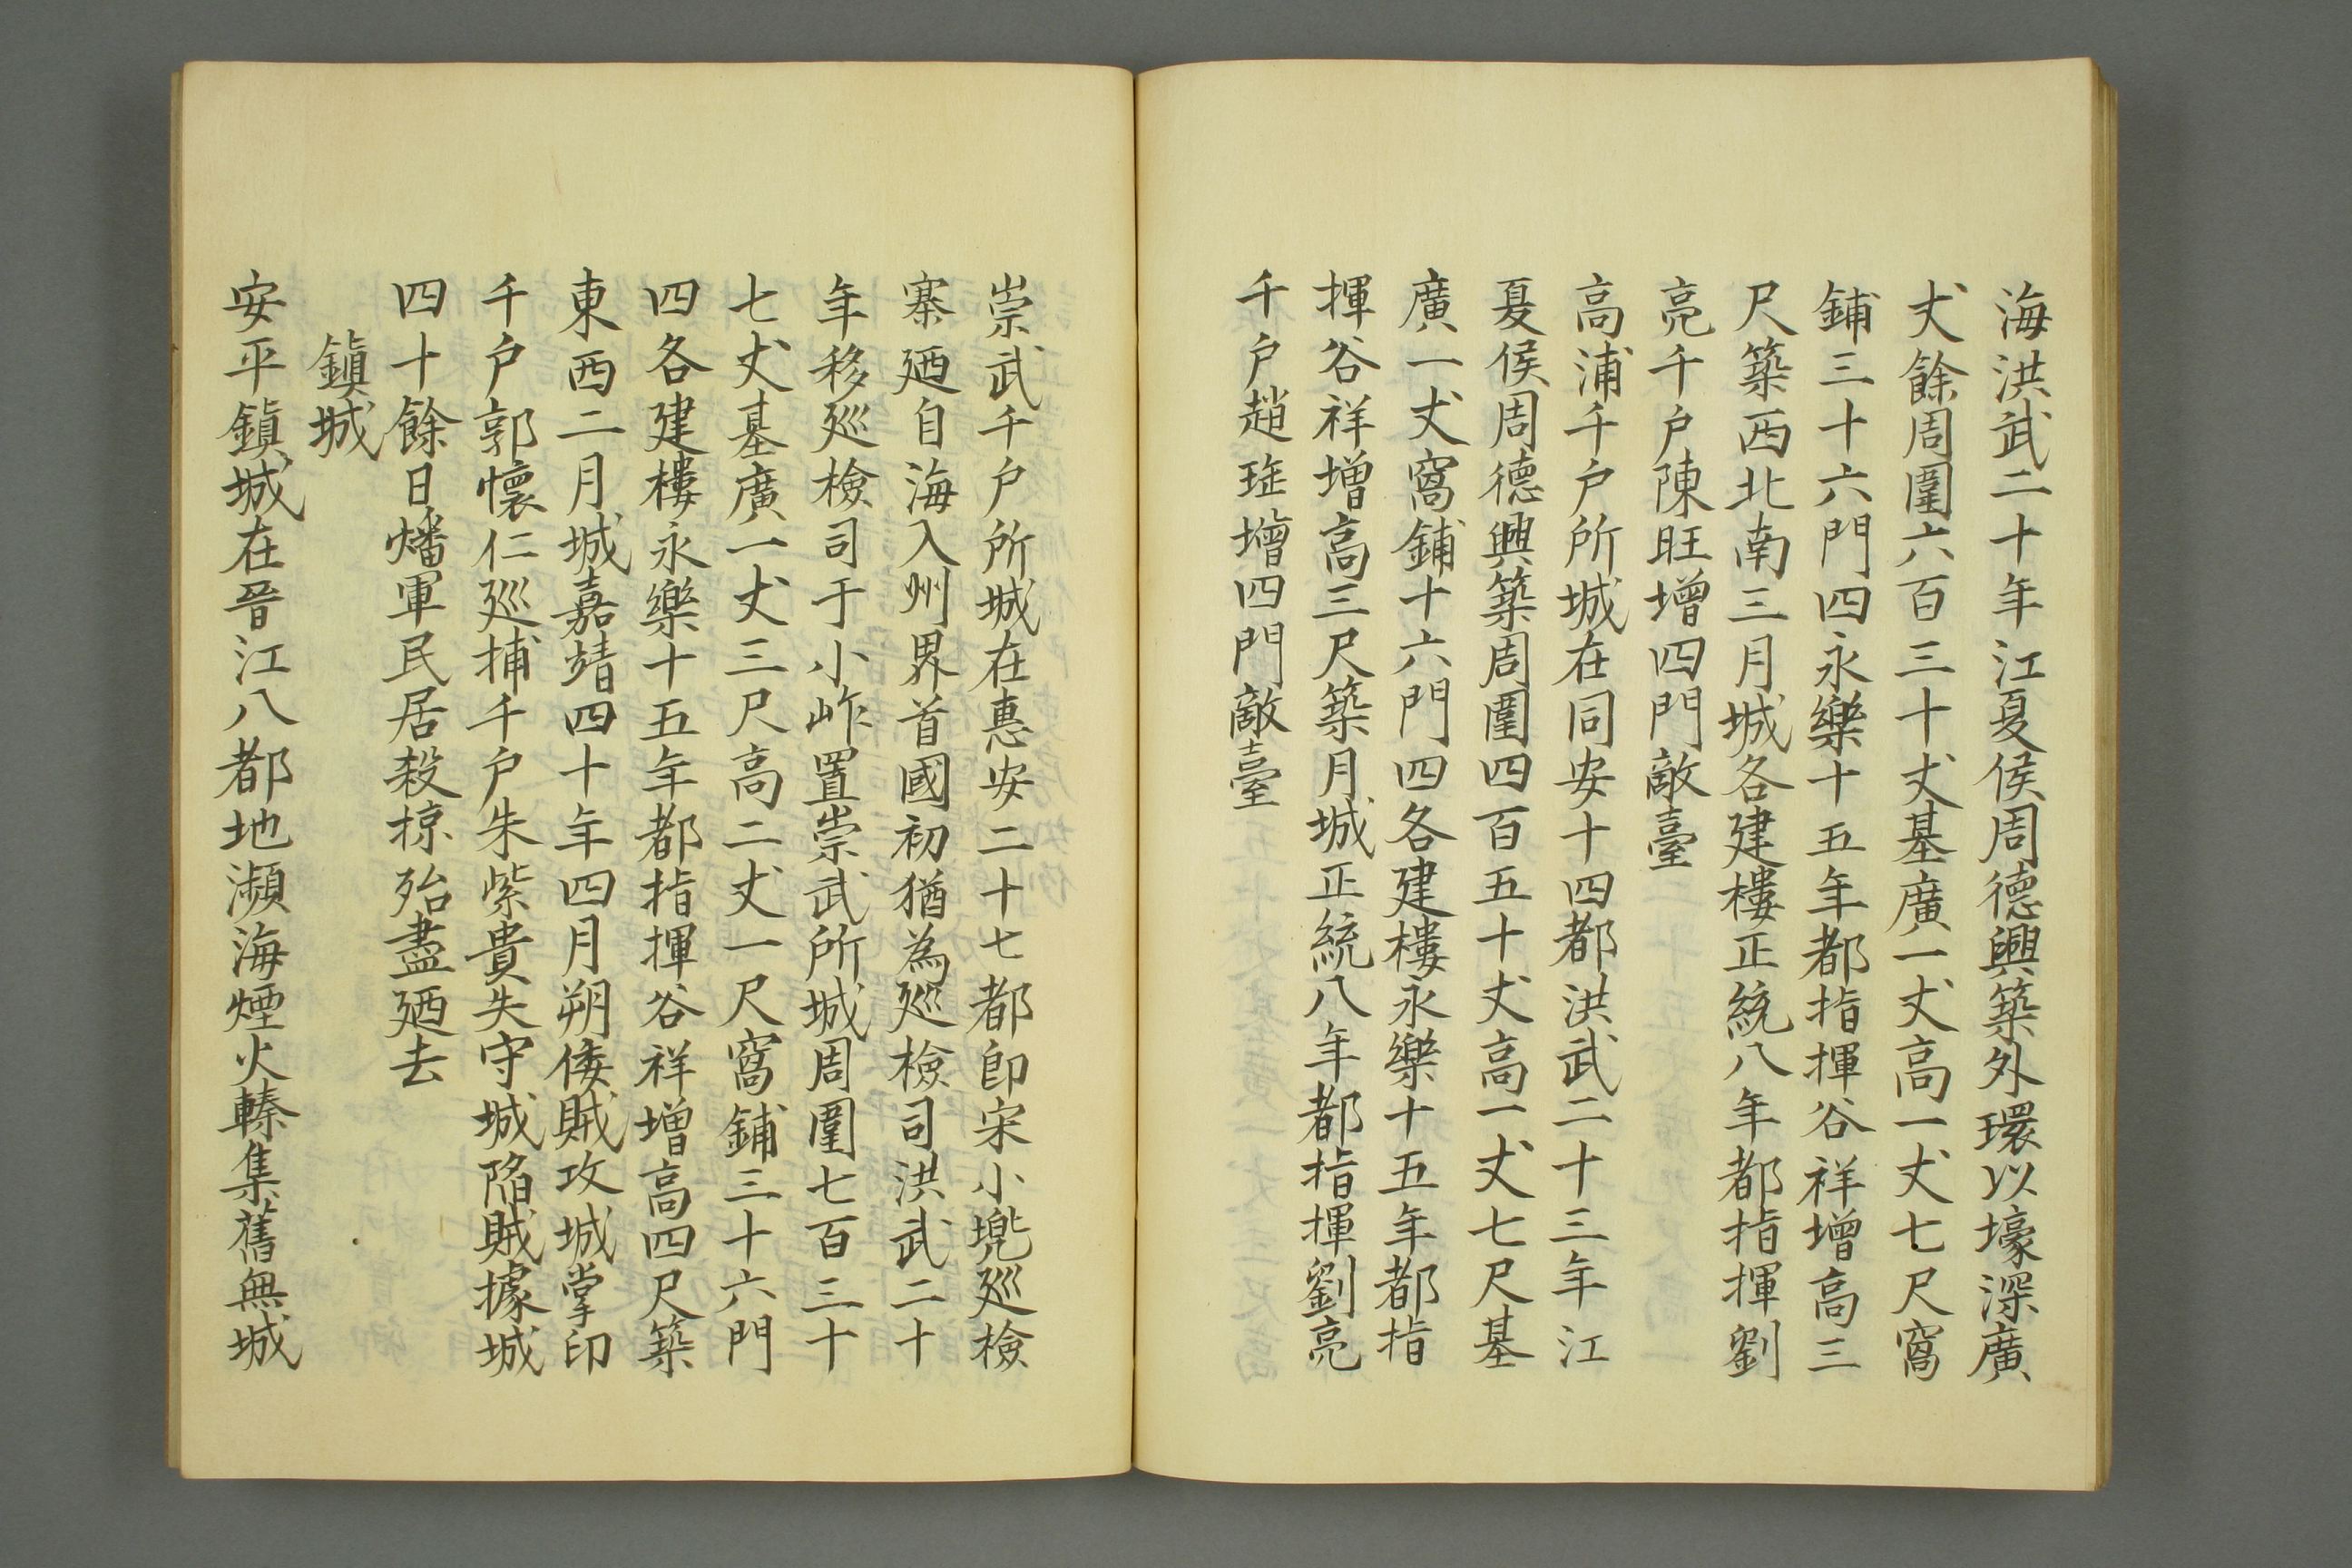 海洪武二十年江夏侯周德興築外環以壕深廣
丈餘周圍六百三十丈基廣一丈高一丈七尺窩
鋪三十六門四永樂十五年都指揮谷祥增高三
尺築西北南三月城各建樓正統八年都指揮劉
亮千户陳旺增四門敵臺
高浦千户所城在同安十四都洪武二十三年江
夏侯周德興築周圍四百五十丈高一丈七尺基
廣一丈窩鋪十六門四各建樓永樂十五年都指
揮谷祥增高三尺築月城正統八年都指揮劉亮
千户趙珤增四門敵臺
崇武千户所城在惠安二十七都即宋小兠巡檢
寨廼自海入州界首國初猶為巡檢司洪武二十
年移巡檢司于小岞置崇武所城周圍七百三十
七丈基廣一丈三尺高二丈一尺窩鋪三十六門
四各建樓永樂十五年都指揮谷祥增高四尺築
東西二月城嘉靖四十年四月朔倭賊攻城掌印
千户郭懷仁巡捕千户朱紫貴失守城陷賊據城
四十餘日燔軍民居殺掠殆盡廼去
鎮城
安平鎮城在晉江八都地瀕海煙火轃集舊無城